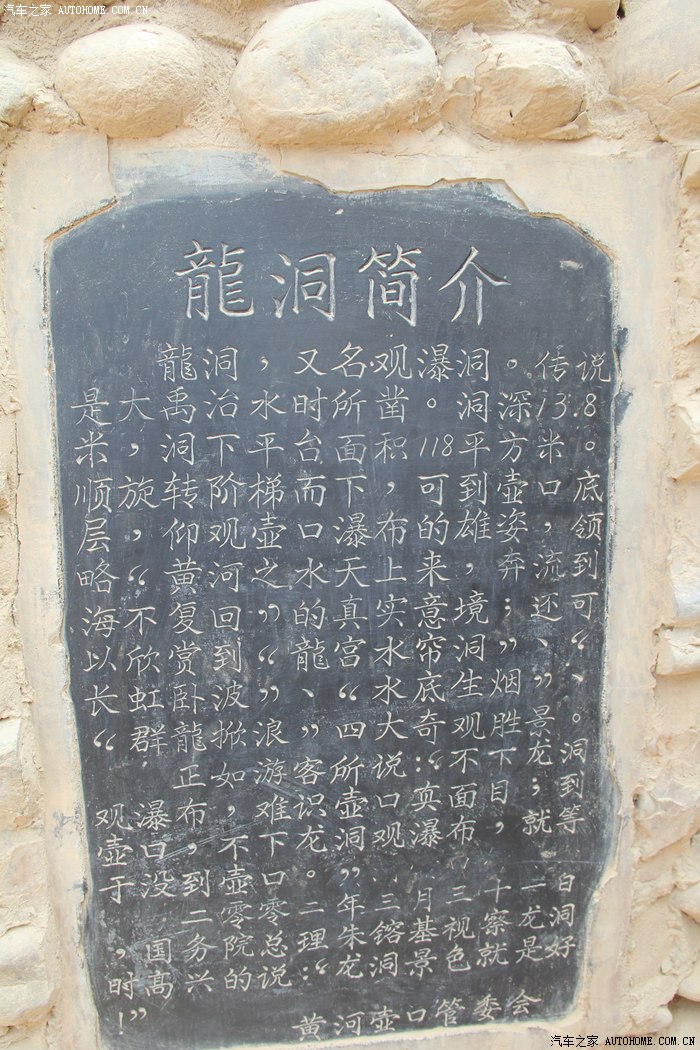 汽车之家 AUTOHOME.COM.CN
龍洞简介
龍洞，又名观瀑洞。传说
是大禹治水时所凿。洞深13.8
米，洞下平台面积118平方米。
顺旋转阶梯而下，可到壶口底
层，仰观壶口瀑布的雄姿，领
略“黄河之水天上来，奔流到
海不复回”的真实意境；还可
以欣赏到“龍宫水帘洞”、“
长虹卧波”、“水底生烟”、
“群龍掀浪”四大奇观胜景。
正如游客所说：“不下龙洞
观瀑布，难识壶口真面目；到
壶口，不下龙洞观瀑布，就等
于没到壶口。”
二零零二年三月十二日
，国务院总理朱镕基视察龙洞
时高兴的说：“龙洞景色就是好
！”
黄河壶口管委会
汽车之家 AUTOHOME.COM.CN